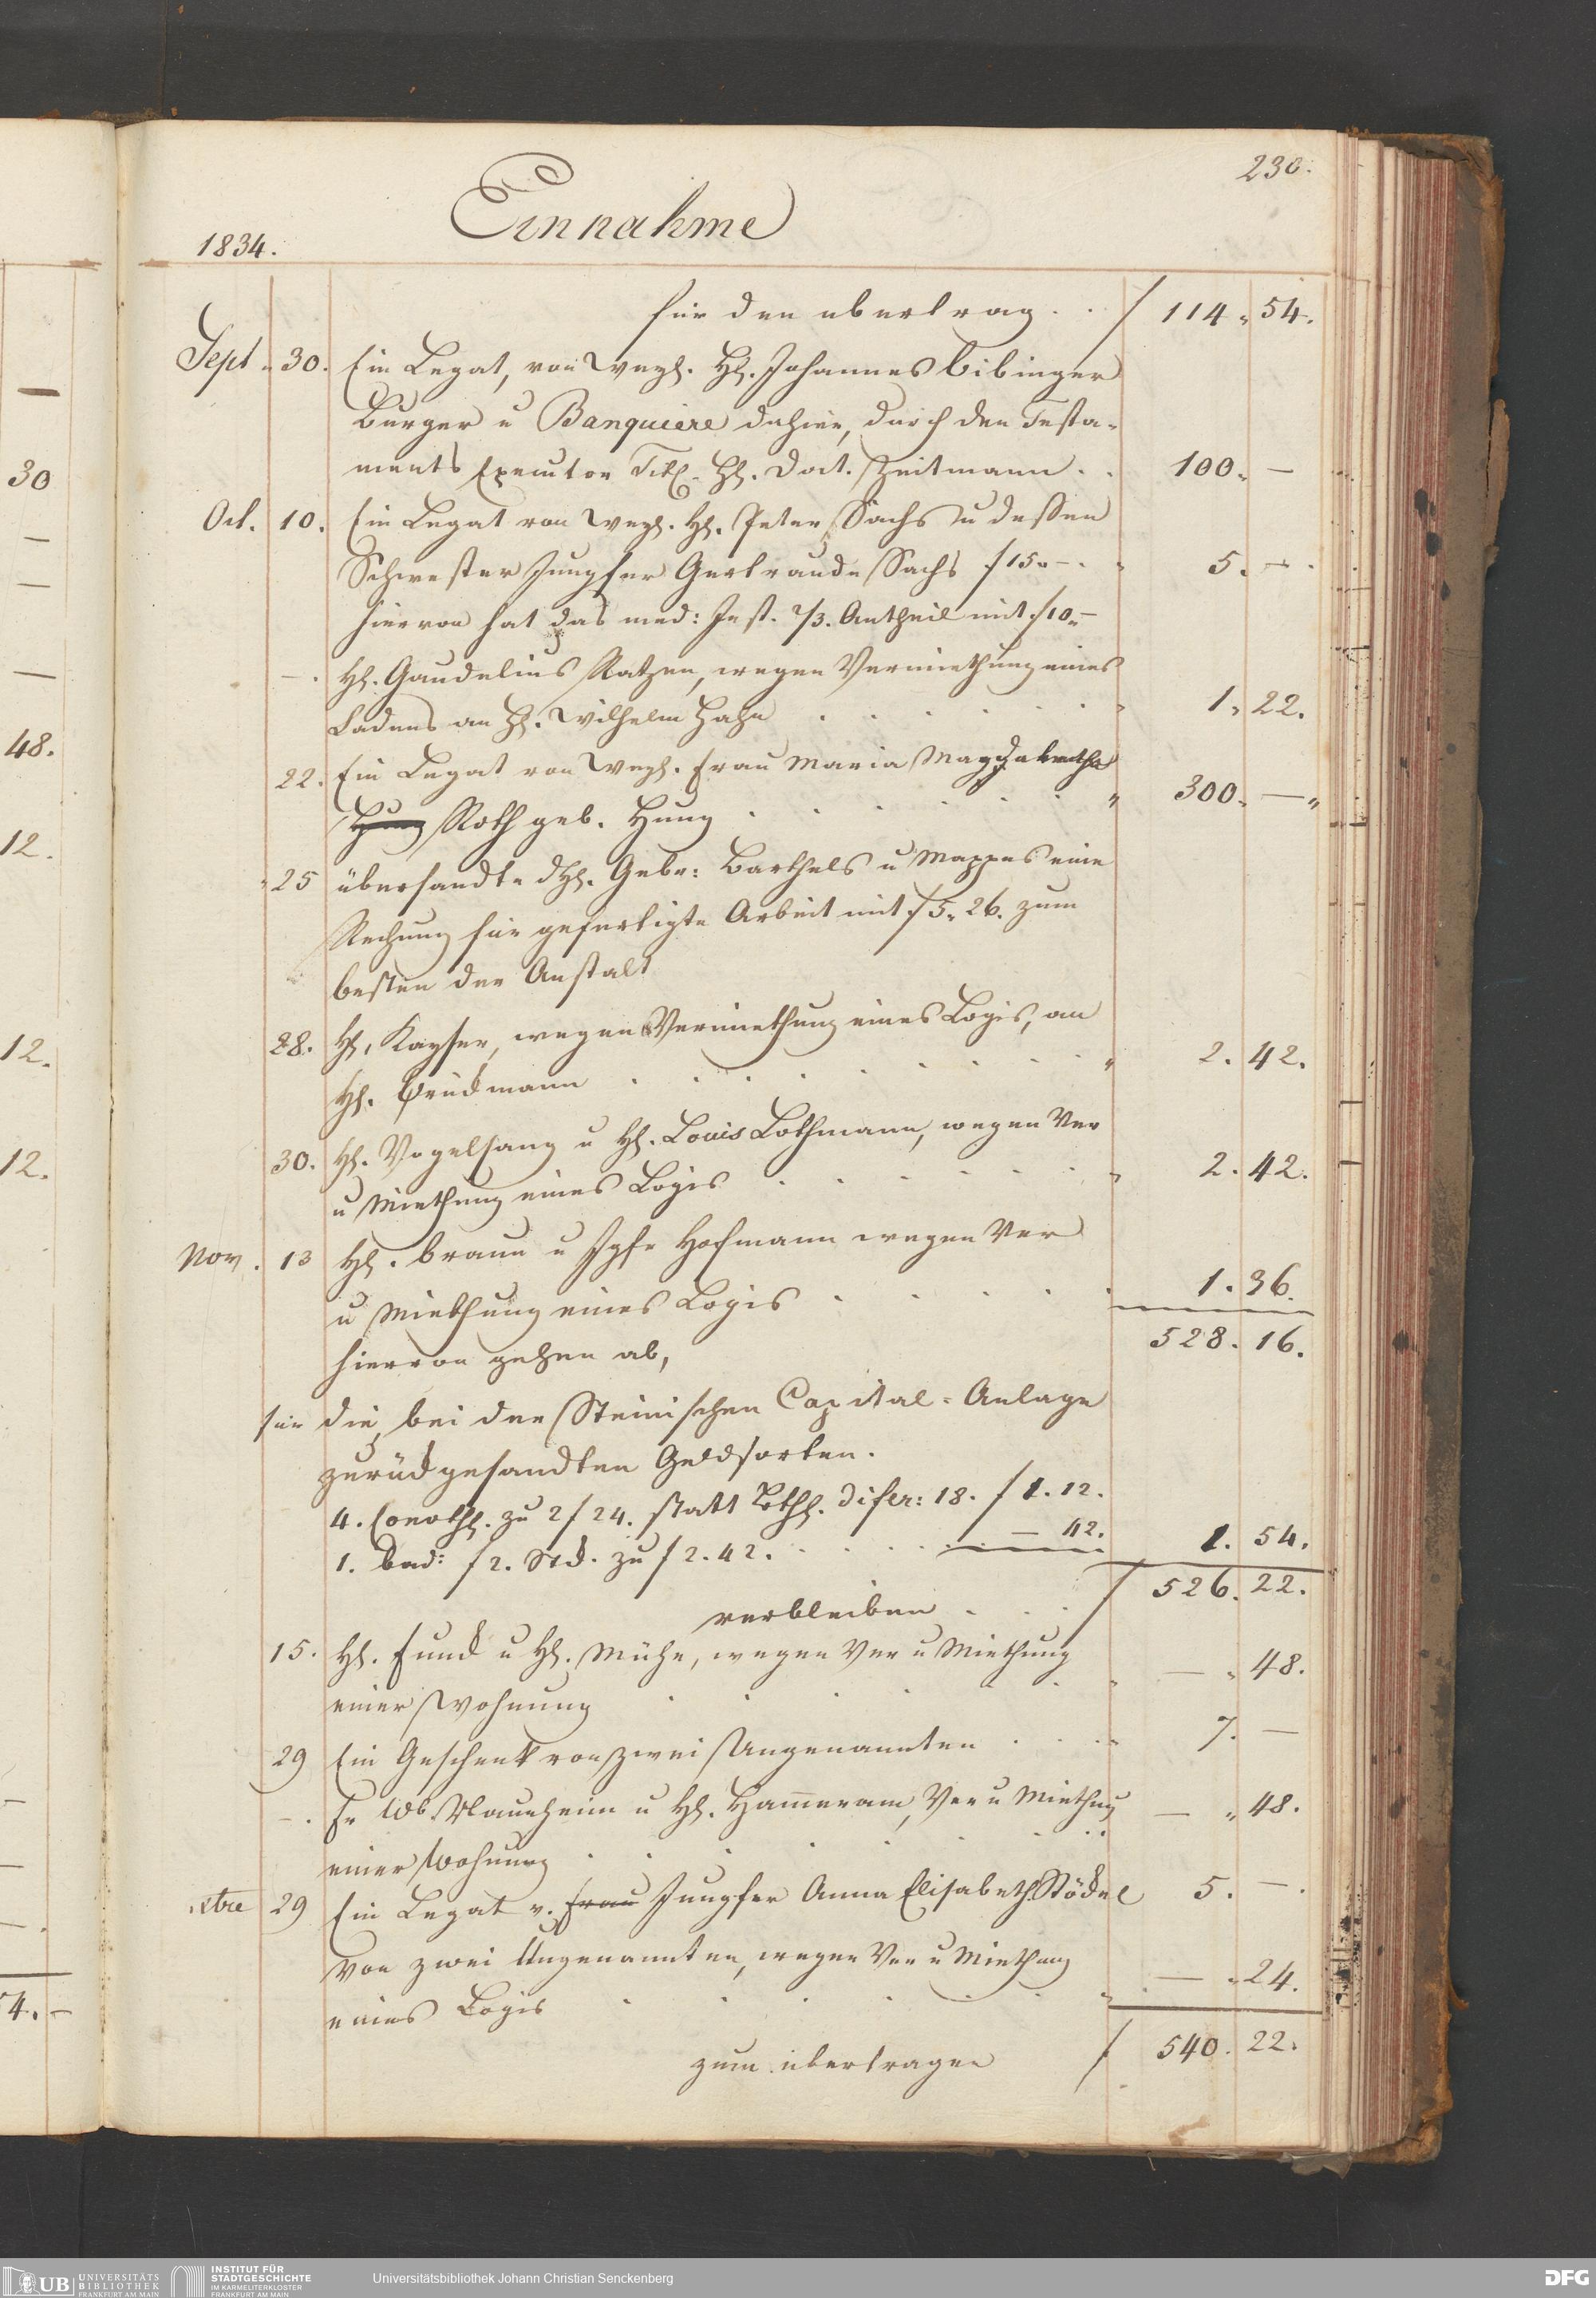 230.
Einnahme
1834.
für den übertrag . . f 114. 54.
Sept. 30. Ein Legat, von Weyl. H. Johannes Bibinger
Burger u Banquiere dahier, durch den Testa-
ments Executor Titl. H. Doct. Zeitmann . . 100. —
Oct. 10. Ein Legat von Weyl. H. Peter Sachs u dessen
Schwester Jungfer Gertraude Sachs f 15. — . 5. —
hiervon hat das med: Inst. 2/3. Antheil mit f 10. —
— . H. Gaudelius Ratzen, wegen Vermiethung eines
Ladens an H. Wilhelm Hahn . . . . . . 1. 22.
22. Ein Legat von Weyl. Frau Maria Magdaletha
Hung Roth geb. Hung . . . . . . 300. —
25 übersandte dH. Gebr: Barthels u Mappes eine
Rechnung für gefertigte Arbeit mit f 5. 26. zum
besten der Anstalt
28. H. Kayser, wegen Vermiethung eines Logis, an
H. Brückmann . . . . . . . . 2. 42.
30. H. Vogelsang u H. Louis Lothmann, wegen Ver
u Miethung eines Logis . . . . . . 2. 42.
Nov. 13 H. Braun u Jgfr Hofmann wegen Ver
u Miethung eines Logis . . . . . 1. 36.
528. 16.
hiervon gehen ab,
für die, bei der Steinischen Capital-Anlage
zurückgesandten Geldsorten.
4. Cronthl. zu 2/24. statt difer: 18. f 1. 12.
1. bad: f 2. Stck. zu f 2. 42. . . . . — 42. 1. 54.
verbleiben . . . f 526. 22.
15. H. Funck u H. Mühe, wegen Ver u Miethung
einer Wohnung . . . . . . — . 48.
29 Ein Geschenk von zwei Ungenannten . . . . 7. —
— . Fr Wb. Mannheim u H. Hammeram, Ver u Miethug
einer Wohnung . . . . . . — . 48.
xbre 29 Ein Legat v. Frau Jungfer Anna Elisabeth Städel 5. —
Von zwei Ungenannten, wegen Ver u Miethung
eines Logis . . . . . . — . 24.
zum übertragen f 540. 22.
30
48.
12.
12.
12.
54. —
UB UNIVERSITÄTS
BIBLIOTHEK
FRANKFURT AM MAIN
INSTITUT FÜR
STADTGESCHICHTE
IM KARMELITERKLOSTER
FRANKFURT AM MAIN
Universitätsbibliothek Johann Christian Senckenberg
DFG